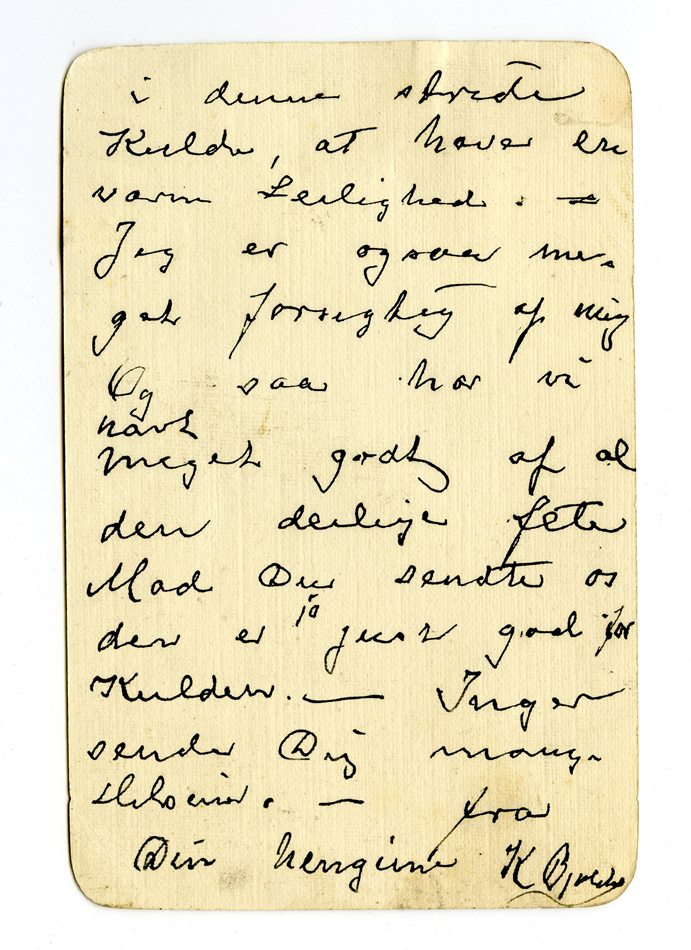 i denne
Kulde, at haver en
varm Leilighed. —
Jeg er ogsaa me-
get forsigtig af mig
Og saa har vi
havt
meget godt af al
den deilige fete
Mad Du sendte os
den er ja just god for
Kulden. — Inger
sender Dig mange
Hilsener. — fra
Din hengivne K